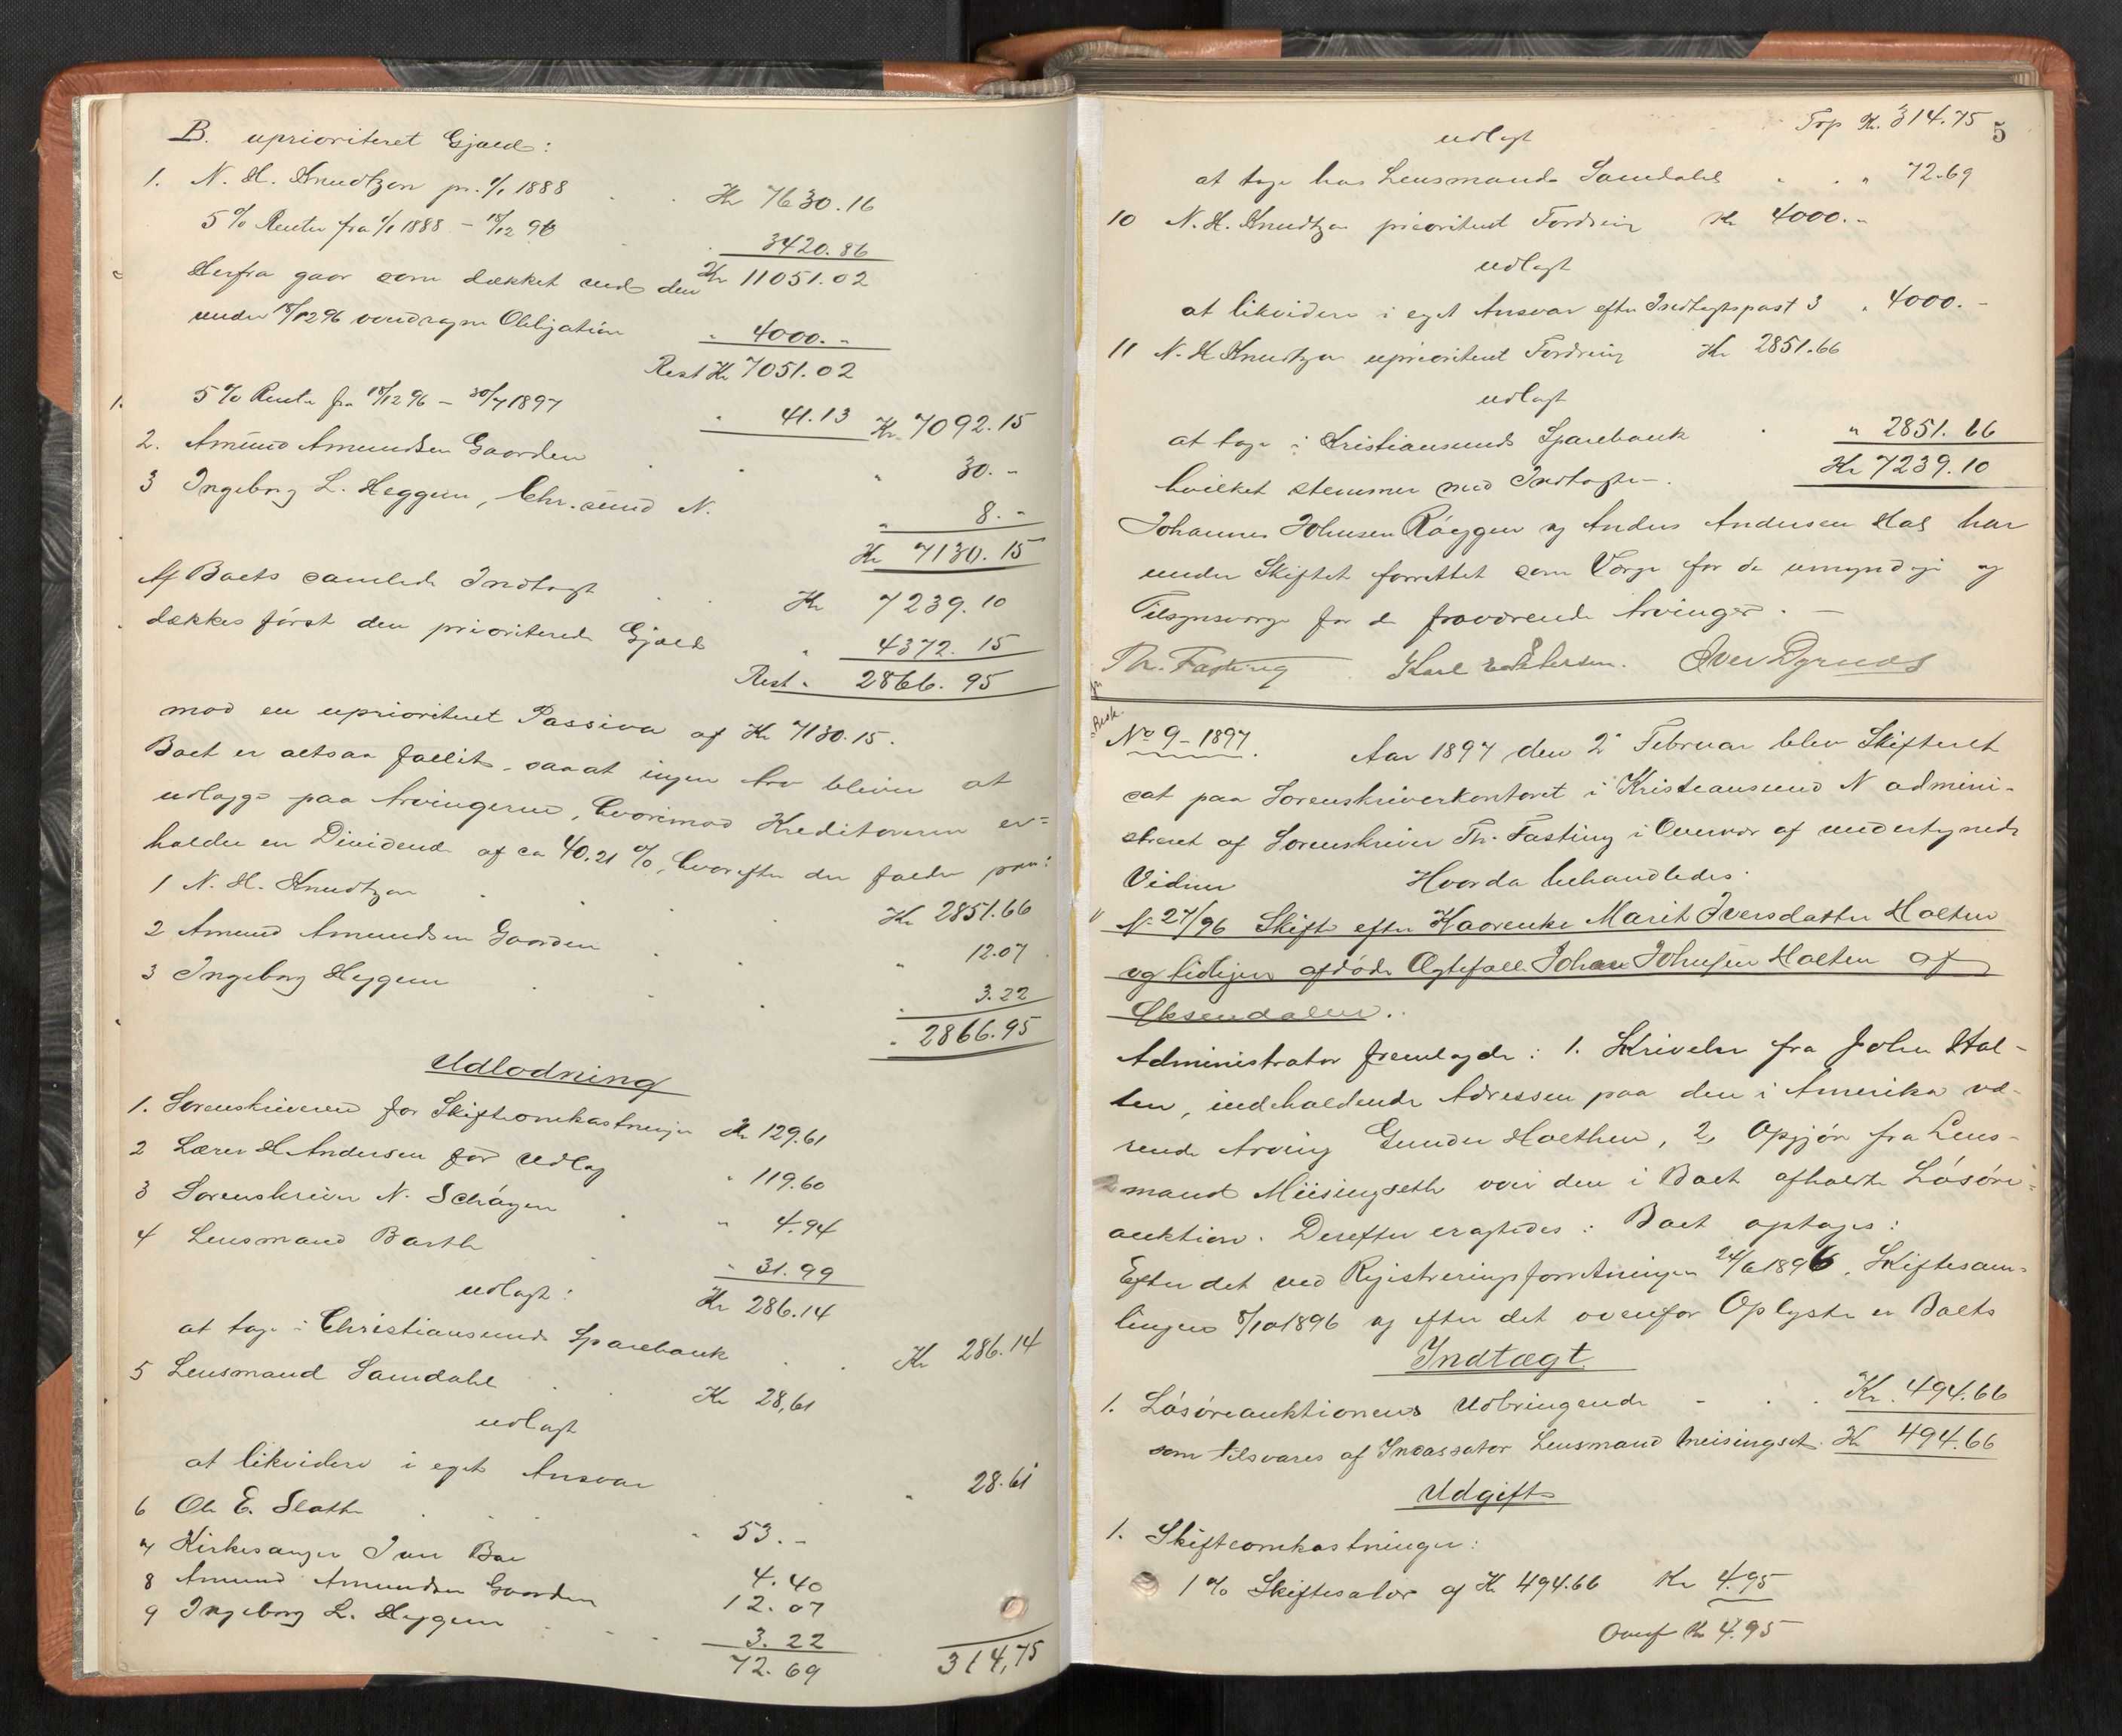 B. uprioriteret Gjæld:
1. N. H. Knudtzon pr. 1/1 1888 Kr 7630.16
5 % Renter fra 1/1 1888 - 18/12 96 3420.86
Herfra gaar som dækket ved den Kr 11051.02
under 18/12 96 vendragne Obligation " 4000.-
Rest Kr 7051.02
5 % Rente fra 18/12 96 - 30/1 1897 " 41.13 Kr 7092.15
2. Amund Amundsen Gaarden " 30.-
3 Ingeborg L. Heggem, Chr.sund N. " 8.-
Kr 7130.15
Af Boets samlede Indtægt Kr 7239.10
dækkes først den prioriterede Gjæld " 4372.15
Rest " 2866.95
mod en uprioriteret Passiva af Kr 7130.15.
Boet er altsaa fallit, saaat ingen Arv bliver at
udlægge paa Arvingerne, hvorimod Kreditorerne er=
holder en Dividende af ca 40.21 %, hvorefter der falder paa:
1 N. H. Knudtzon Kr 2851.66
2 Amund Amundsen Gaarden " 12.07
3 Ingeborg Heggem " 3.22
" 2866.95
Udlodning
1. Sorenskriveren for Skifteomkostninger Kr 129.61
2 Lærer H. Andersen for Udlæg " 119.60
3 Sorenskriver N. Schøyen " 4.94
4 Lensmand Barth " 31.99
udlagt: Kr 286.14
at tage i Christiansunds Sparebank Kr 286.14
5 Lensmand Samdahl Kr 28,61
udlagt
at likvidere i eget Ansvar " 28.61
6 Ole E. Slatte " 53.-
7 Kirkesanger Iver Boe 4.40
8 Amund Amundsen Gaarden 12.07
9 Ingeborg L. Heggem 3.22
72.69 314,75
Trp Kr. 314.75 5
udlagt
at tage hos Lensmand Samdahl " 72.69
10 N. H. Knudtzon prioriteret Fordring Kr 4000.-
udlagt
at likvidere i eget Ansvar efter Indtægtspost 3 " 4000.-
11 N. H. Knudtzon uprioriteret Fordring Kr 2851.66
udlagt
at tage i Kristiansunds Sparebank " 2851.66
hvilket stemmer med Indtægten. Kr 7239.10
Johannes Johnsen Røeggen og Anders Andersen Hals har
under Skiftet forrettet som Værge for de umyndige og
Tilsynsværge for de fraværende Arvinger. -
Th. Fasting Karl Pettersen. Iver Dyrnes
No 9 - 1897. Aar 1897 den 2 Februar blev Skifteret
sat paa Sorenskriverkontoret i Kristiansund N admini-
streret af Sorenskriver Th. Fasting i Overvær af undertegnede
Vidner Hvorda behandledes:
No 27/96 Skifte efter Kaarenke Marit Iversdatter Holten
og tidligere afdøde Ægtefælle Johan Johnsen Holten af
Øksendalen.
Administrator fremlagde: 1. Skrivelse fra John Hol-
ten, indeholdende Adressen paa den i Amerika væ-
rende Arving Gunder Holthen, 2, Opgjør fra Lens-
mand Meisingseth over den i Boet afholdte Løsøre-
auktion. Derefter eragtedes: Boet optages:
Efter det ved Registreringsforretningen 24/6 1896, Skiftesam-
lingen 8/10 1896 og efter det ovenfor Oplyste er Boets
Indtægt
1. Løsøreauktionens Udbringende Kr. 494.66
som tilsvares af Incassator Lensmand Meisingset. Kr 494.66
Udgift
1. Skifteomkostninger:
1 % Skiftesalær af Kr 494.66 Kr 4.95
Overf Kr 4.95